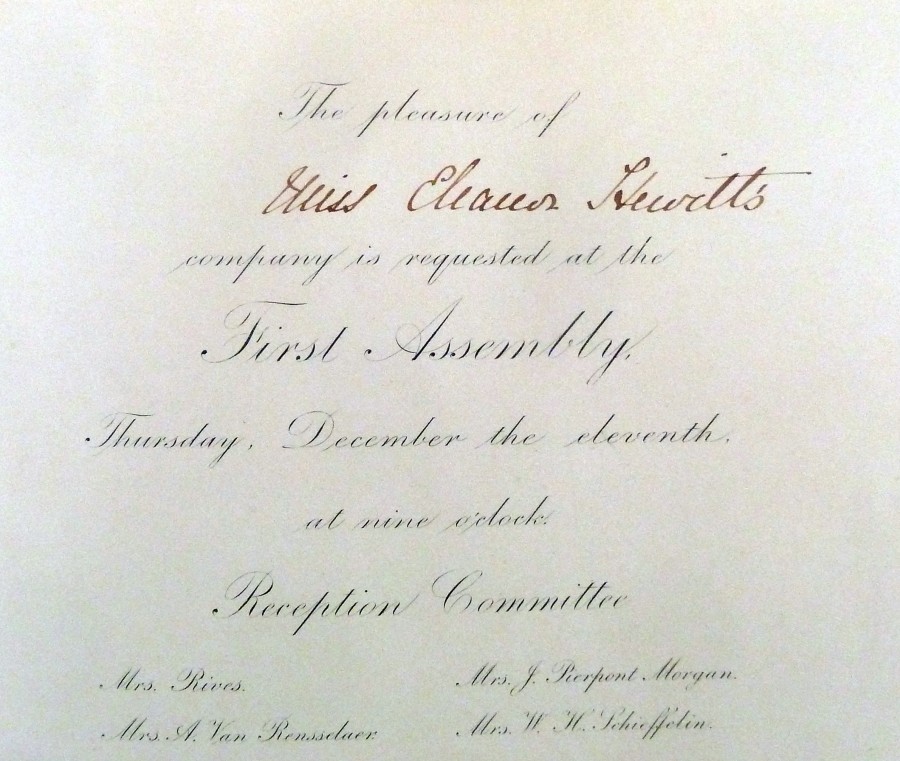 The pleasure of
Miss Eleanor Hewitt's
company is requested at the
First Assembly,
Thursday, December the eleventh,
at nine o'clock.
Reception Committee
Mrs. Rives. Mrs. J. Pierpont Morgan.
Mrs. A. Van Rensselaer. Mrs. W. H. Schieffelin.